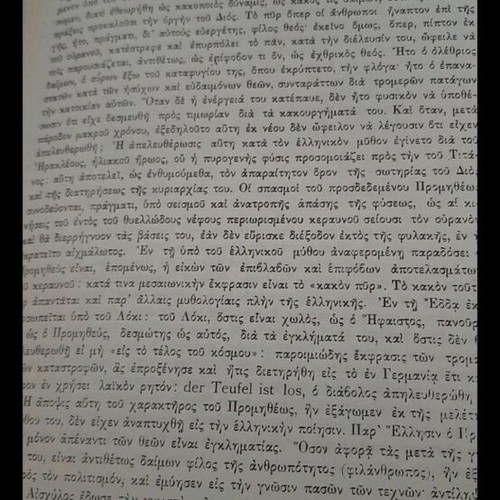 μενον ὑπὸ τοῦ
διατὶ ἐθεωρήθη ὡς κακοποιὸς δύναμις, ὡς κακὸς τις δαίμων,
πράξεις προκαλοῦσι τὴν ὀργὴν τοῦ Διός. Τὸ πῦρ ὅπερ οἱ ἄνθρωποι ἥναπτον ἐπὶ τῆς
γῆς, ἦτο, πράγματι, δι' αὐτοὺς εὐεργέτης, φίλος θεός· ἐκεῖνο ὅμως, ὅπερ, πῖπτον ἐκ
τοῦ οὐρανοῦ, κατέστρεφε καὶ ἐπυρπόλει τὸ πᾶν, κατὰ τὴν διέλευσίν του, ὤφειλε νὰ
τοῖς παρουσιάζεται, ἀντιθέτως, ὡς ἐπίφοβον τι ὄν, ὡς ἐχθρικὸς θεός. Ἦτο ὁ ὀλέθριος
δαίμων, ὁ σύρων ἔξω τοῦ καταφυγίου της, ὅπου ἐκρύπτετο, τὴν φλόγα· ἦτο ὁ ἐπανα-
στατῶν κατὰ τῶν ἡσύχων καὶ εὐδαιμόνων θεῶν, συνταράττων διὰ τρομερῶν πατάγων
τὴν κατοικίαν αὐτῶν. Ὅταν δὲ ἡ ἐνέργειά του κατέπαυε, δὲν ἦτο φυσικὸν νὰ ὑποθέ-
σωσιν ὅτι εἶχε δεσμευθῆ πρὸς τιμωρίαν διὰ τὰ κακουργήματά του. Καὶ ὅταν, μετὰ
πάροδον μικροῦ χρόνου, ἐξεδηλοῦτο αὕτη ἐκ νέου δὲν ὤφειλον νὰ λέγουσιν ὅτι εἶχεν
ἀπελευθερωθῆ; Ἡ ἀπελευθέρωσις αὕτη κατὰ τὸν ἑλληνικὸν μῦθον ἐγίνετο διὰ τοῦ
Ἡρακλέους, ἡλιακοῦ ἥρωος, οὗ ἡ πυρογενὴς φύσις προσομοιάζει πρὸς τὴν τοῦ Τιτᾶ-
νος· αὕτη ἀποτελεῖ, ὡς ἐνθυμούμεθα, τὸν ἀπαραίτητον ὅρον τῆς σωτηρίας τοῦ Διὸς
καὶ τῆς διατηρήσεως τῆς κυριαρχίας του. Οἱ σπασμοὶ τοῦ προσδεδεμένου Προμηθέως
συνοδεύονται, πράγματι, ὑπὸ σεισμοῦ καὶ ἀνατροπῆς ἁπάσης τῆς φύσεως, ὡς αἱ κι-
νήσεις τοῦ ἐντὸς τοῦ θυελλώδους νέφους περιωρισμένου κεραυνοῦ σείουσι τὸν οὐρανὸν
καὶ θὰ διερρήγνυον τὰς βάσεις του, ἐὰν δὲν εὕρισκε διέξοδον ἐκτὸς τῆς φυλακῆς, ἐν ᾗ
κρατεῖτο αἰχμάλωτος. Ἐν τῇ ὑπὸ τοῦ ἑλληνικοῦ μύθου ἀναφερομένῃ παραδόσει
Προμηθεὺς εἶναι, ἑπομένως, ἡ εἰκὼν τῶν ἐπιβλαβῶν καὶ ἐπιφόβων ἀποτελεσμάτων
τοῦ κεραυνοῦ: κατά τινα μεσαιωνικὴν ἔκφρασιν εἶναι τὸ «κακὸν πῦρ». Τὸ κακὸν τοῦτο
πῦρ ἀπαντᾶται καὶ παρ' ἄλλαις μυθολογίαις πλὴν τῆς ἑλληνικῆς. Ἐν τῇ Ἔδδᾳ
προσωπεῖται ὑπὸ τοῦ Λόκι: τοῦ Λόκι, ὅστις εἶναι χωλός, ὡς ὁ Ἥφαιστος, πανοῦρ-
ὡς ὁ Προμηθεύς, δεσμώτης ὡς αὐτός, διὰ τὰ ἐγκλήματά του, καὶ ὅστις δὲν θ'
ἀπελευθερωθῇ εἰ μὴ «εἰς τὸ τέλος τοῦ κόσμου»: παροιμιώδης ἔκφρασις τῶν τρομε-
ρῶν καταστροφῶν, ἃς ἐπροξένησε καὶ ἥτις διετηρήθη εἰς τὸ ἐν Γερμανίᾳ ἔτι
ἐν χρήσει λαϊκὸν ρητόν: der Teufel ist los, ὁ διάβολος ἀπηλευθερώθη
Ἡ ἄποψις αὕτη τοῦ χαρακτῆρος τοῦ Προμηθέως, ἣν ἐξάγωμεν ἐκ τῆς μελέτης
του, δὲν εἶχεν ἀναπτυχθῆ εἰς τὴν ἑλληνικὴν ποίησιν. Παρ' Ἕλλησιν ὁ
μόνον ἀπέναντι τῶν θεῶν εἶναι ἐγκληματίας. Ὅσον ἀφορᾷ τὰς μετὰ τῆς
του, εἶναι ἀντιθέτως δαίμων φίλος τῆς ἀνθρωπότητος (φιλάνθρωπος), ἣν
πρὸς τὸν πολιτισμόν, καὶ ἐμύησεν εἰς τὴν γνῶσιν πασῶν τῶν τεχνῶν·
Αἰσχύλος ἔδωσε τὴν